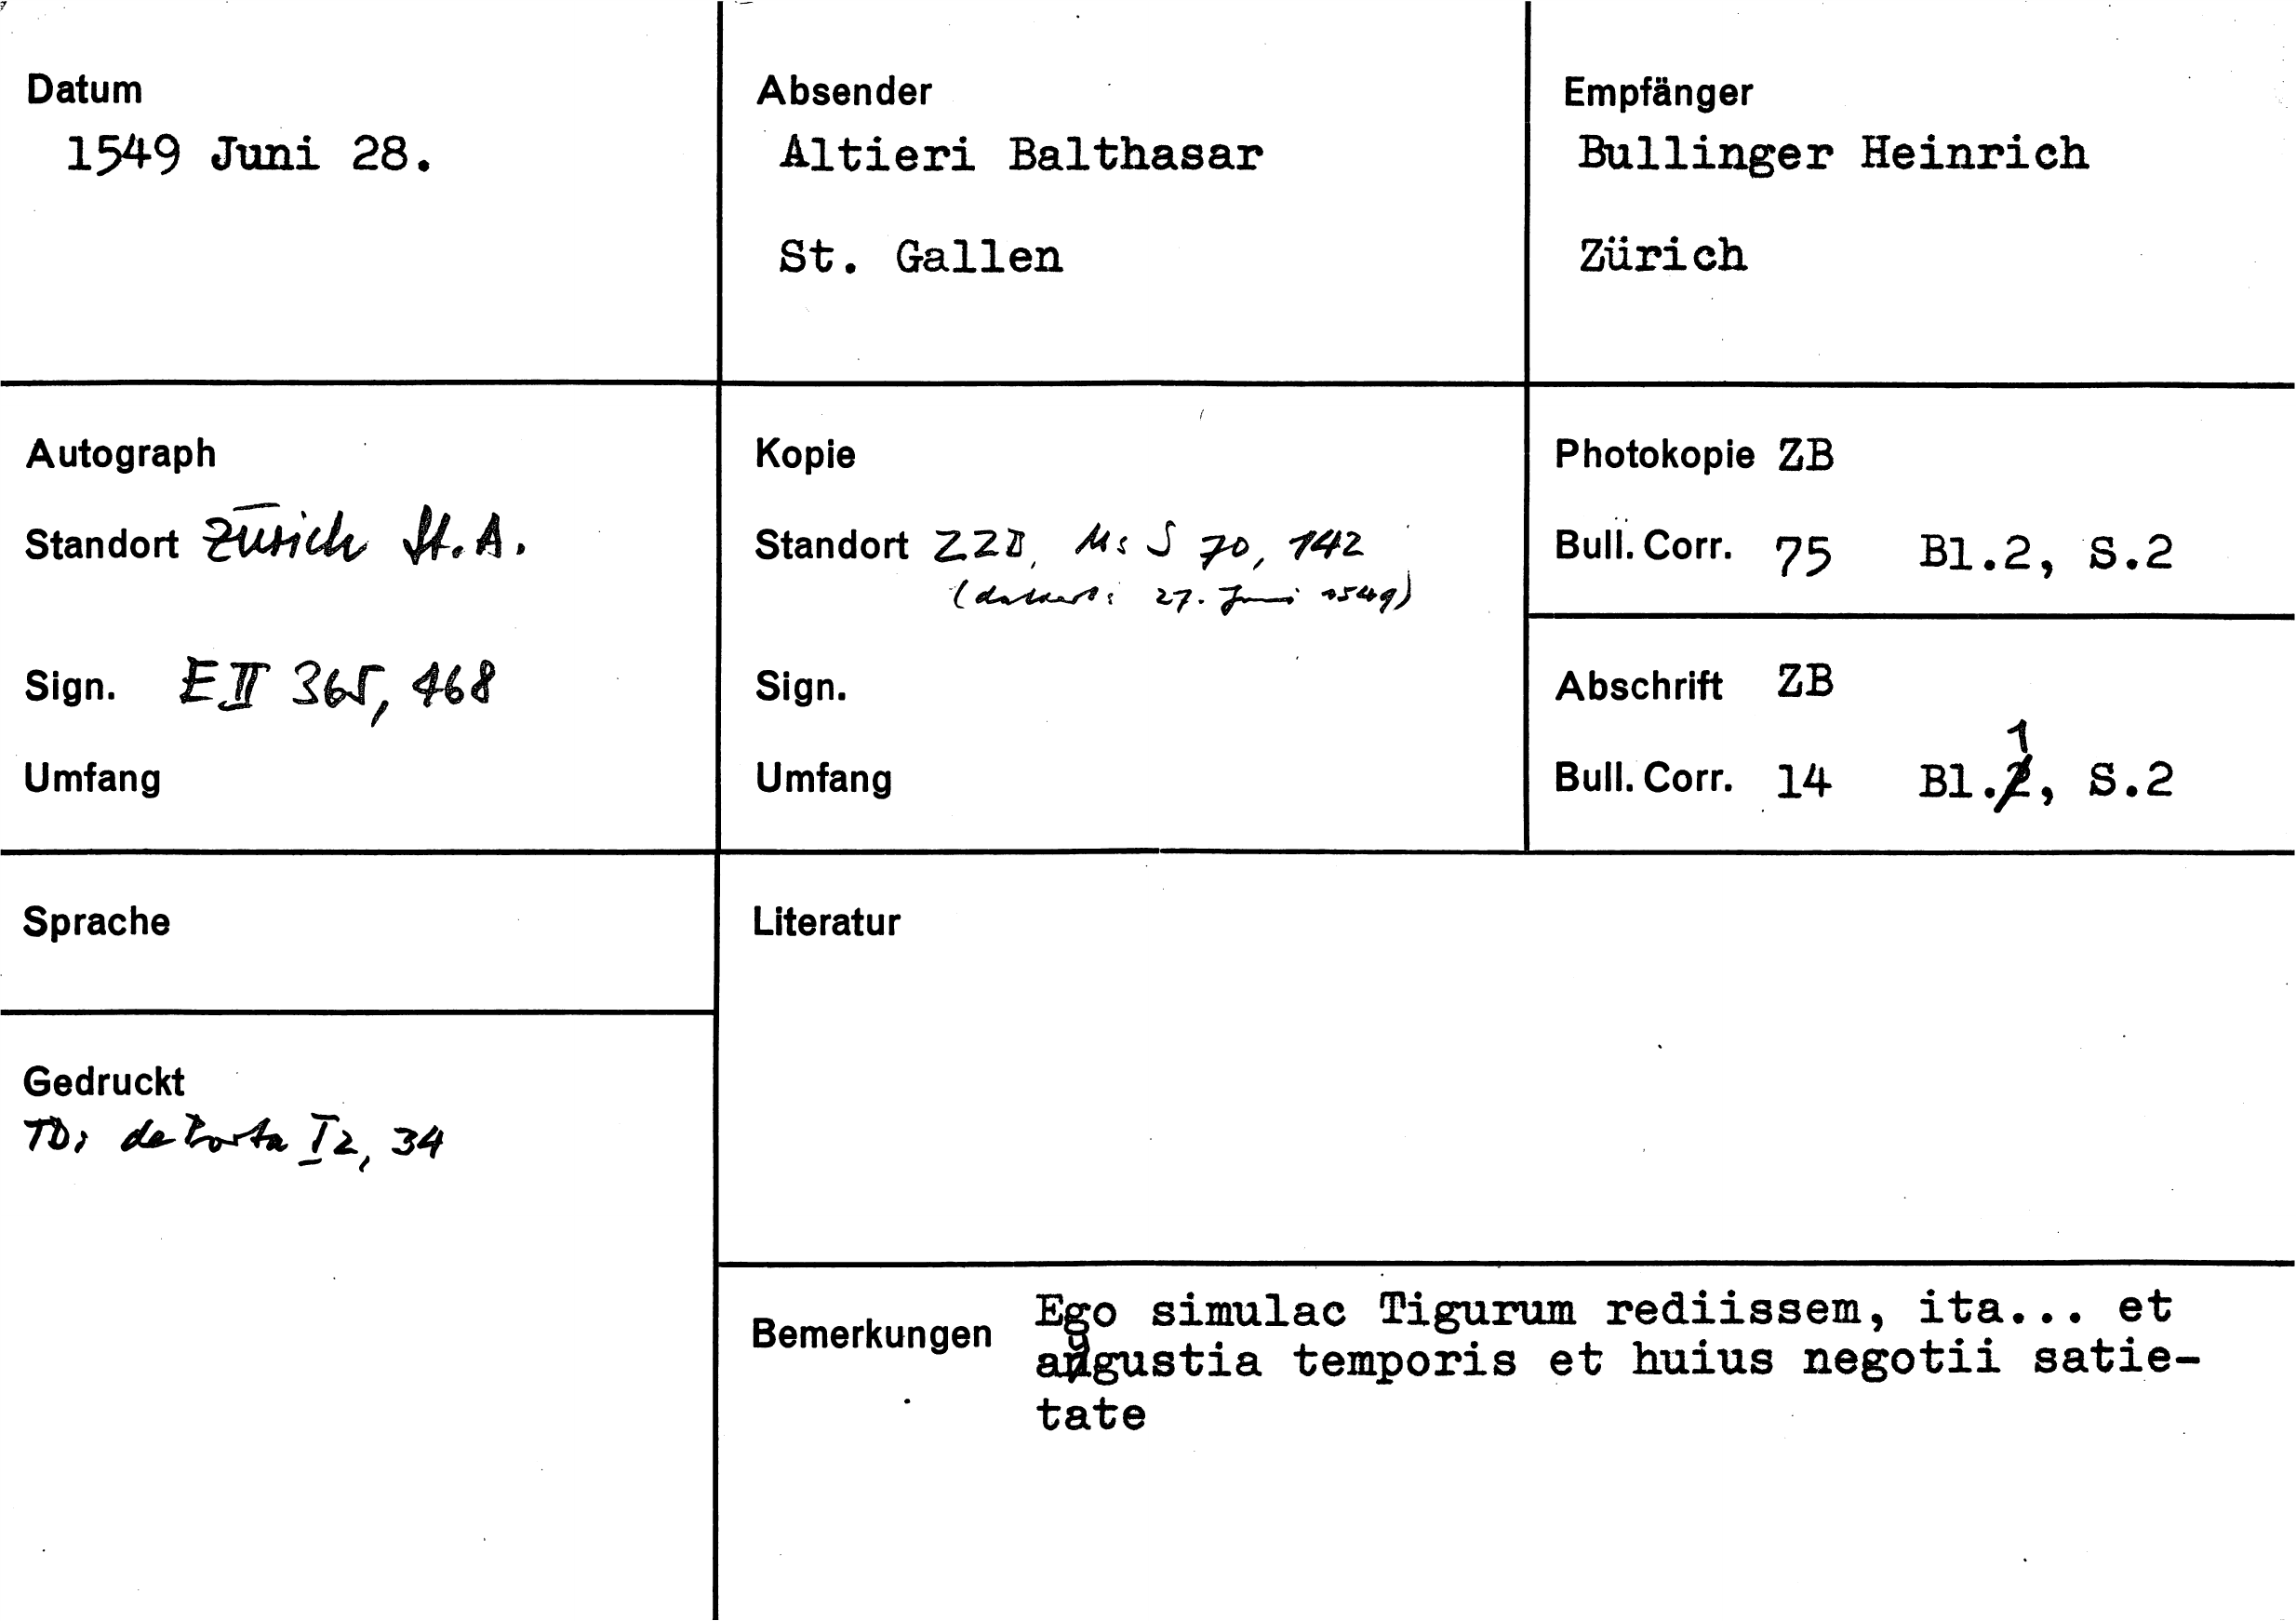 Datum
1549 Juni 28.
Absender
Altieri Balthasar
St. Gallen
Empfänger
Bullinger Heinrich
Zürich
Autograph
Standort Zürich St.A.
Sign. E II 365, 468
Umfang
Kopie
Standort ZZB, Ms S 70, 142
(datiert: 27. Juni 1549)
Sign.
Umfang
Photokopie ZB
Bull. Corr. 75 Bl.2, S.2
Abschrift ZB
Bull. Corr. 14 Bl.1, S.2
Sprache
Gedruckt
TD: de Porta I 2, 34
Literatur
Bemerkungen
Ego simulac Tigurum rediissem, ita... et
angustia temporis et huius negotii satie-
tate